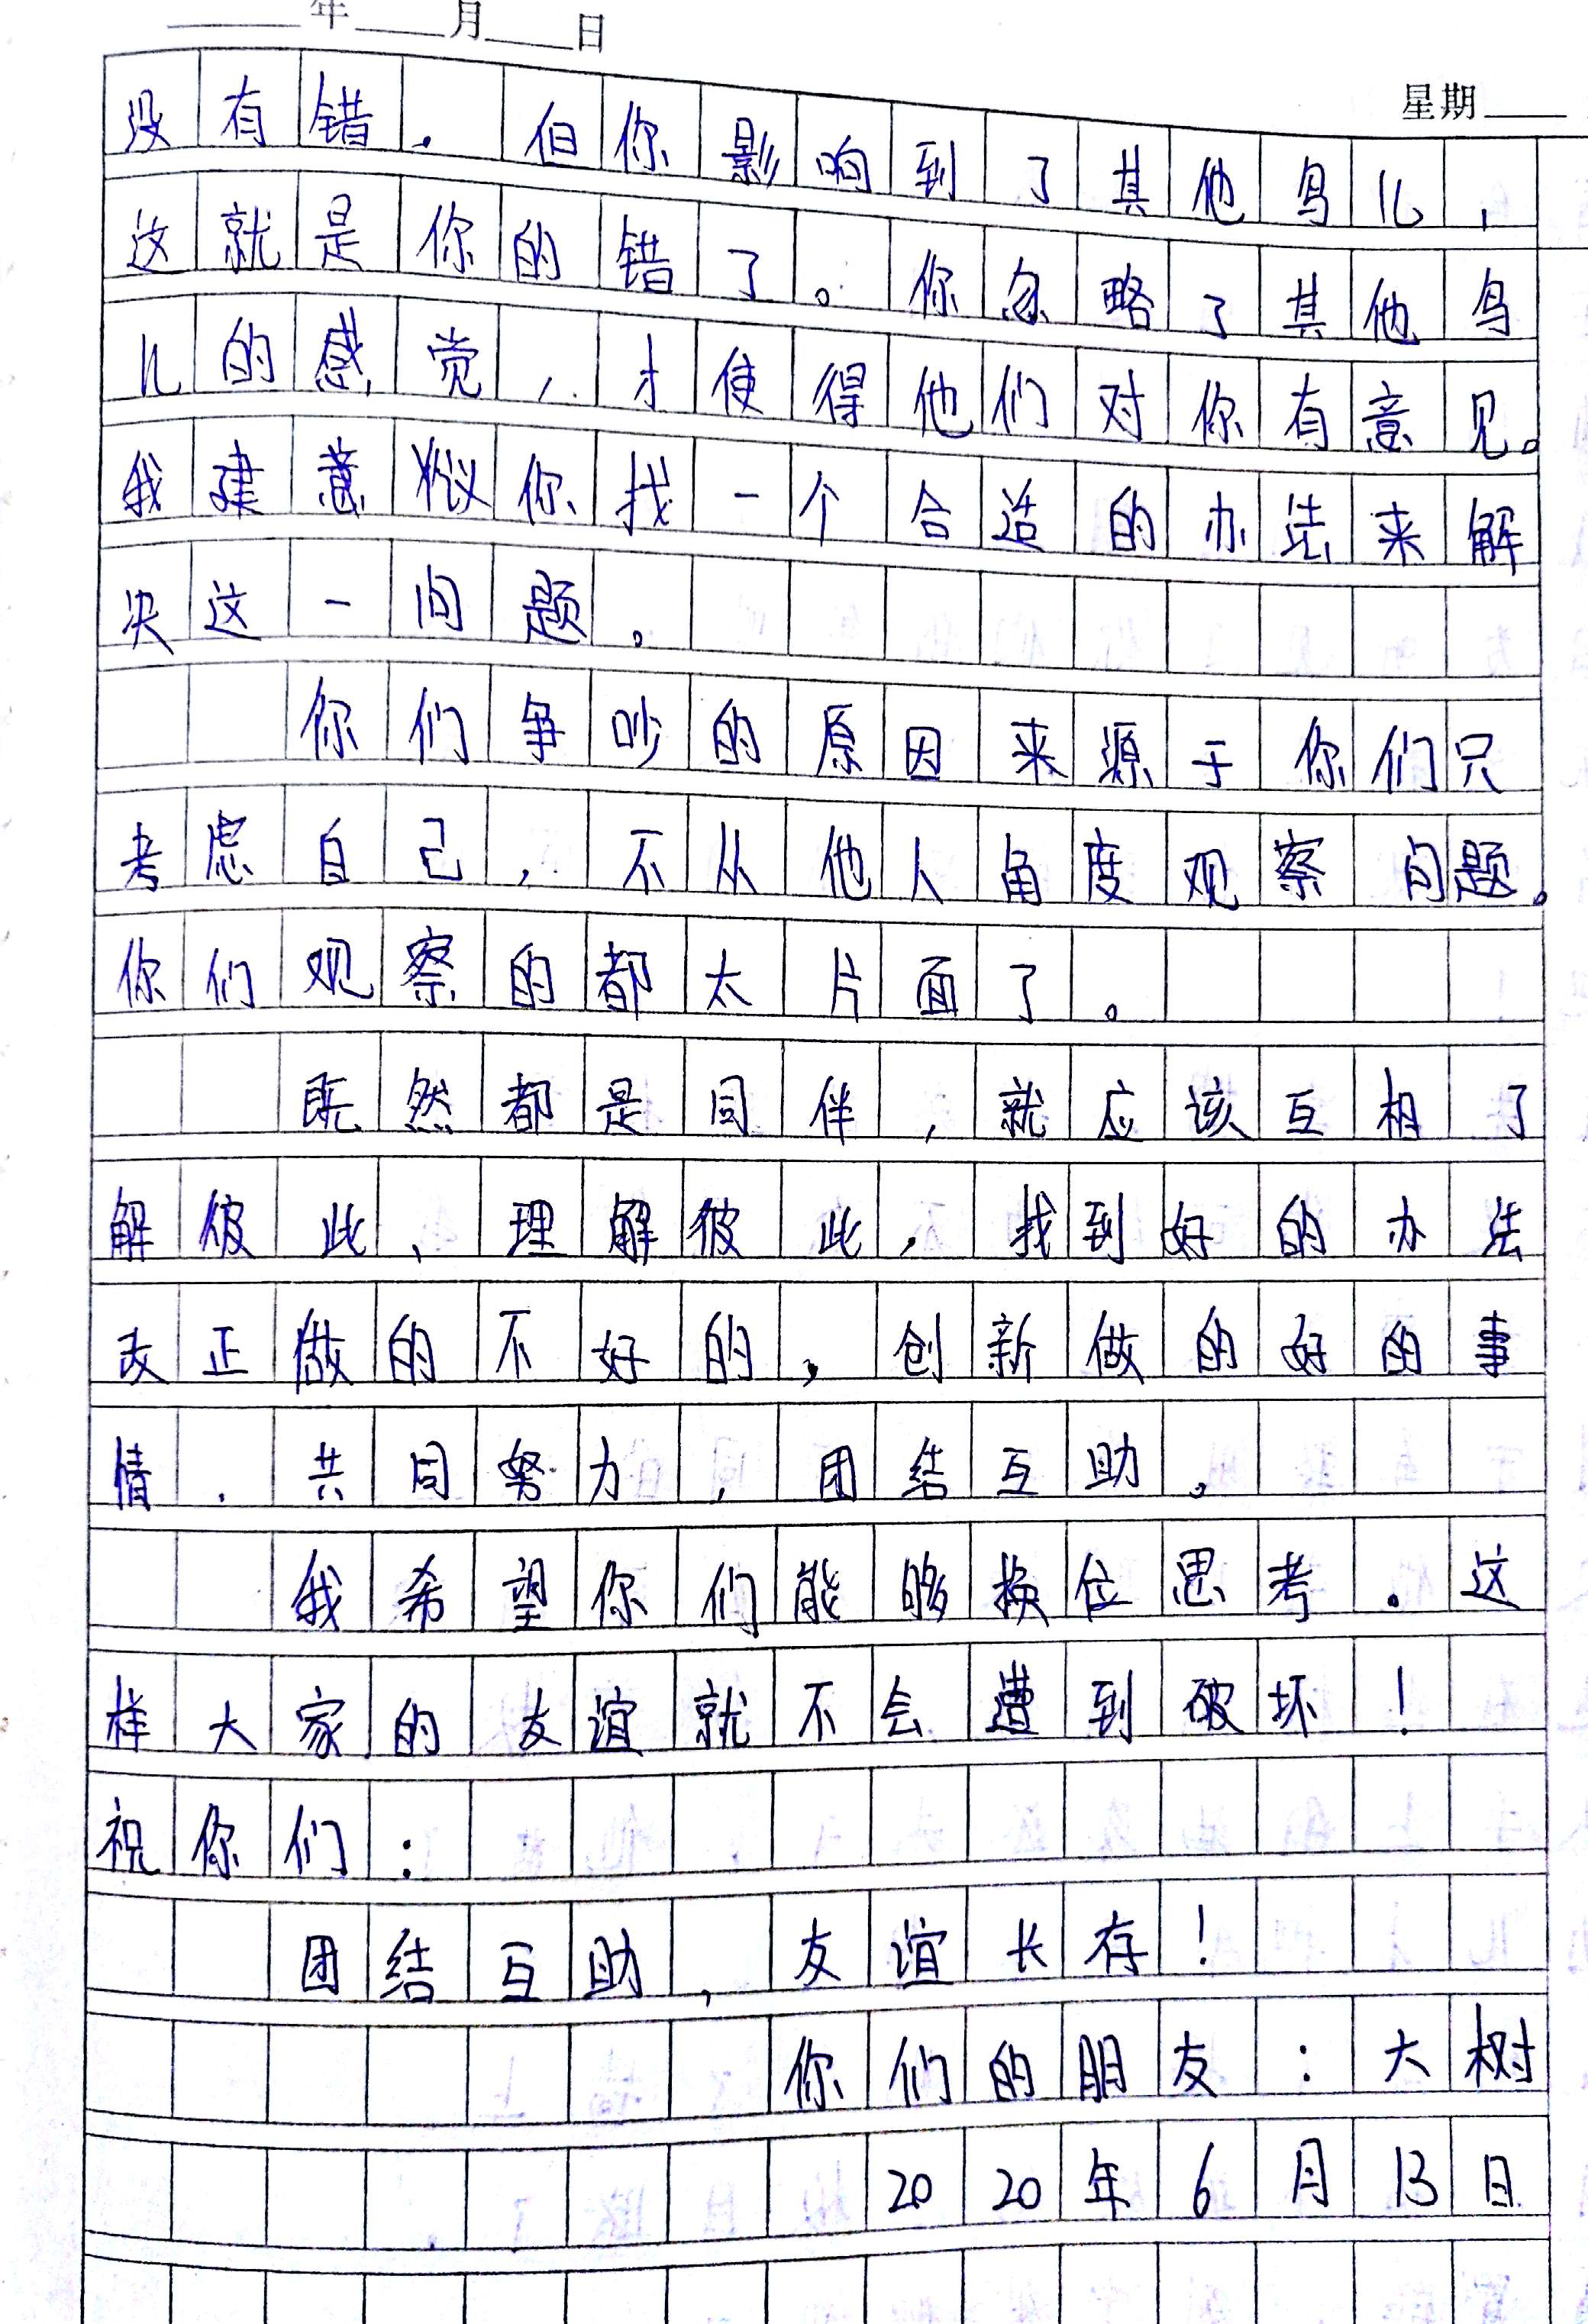 年 月 日
星期
没有错.但你影响到了其他鸟儿,
这就是你的错了。你忽略了其他鸟
儿的感觉,才使得他们对你有意见。
我建意 你找一个合适的办法来解
决这一问题。
你们争吵的原因来源于你们只
考虑自己,不从他人角度观察问题。
你们观察的都太片面了。
既然都是同伴,就应该互相了
解彼此、理解彼此,找到好的办法
改正做的不好的,创新做的好的事
情.共同努力,团结互助。
我希望你们能够换位思考.这
样大家的友谊就不会遭到破坏!
祝你们:
团结互助,友谊长存!
你们的朋友:大树
2020年6月13日